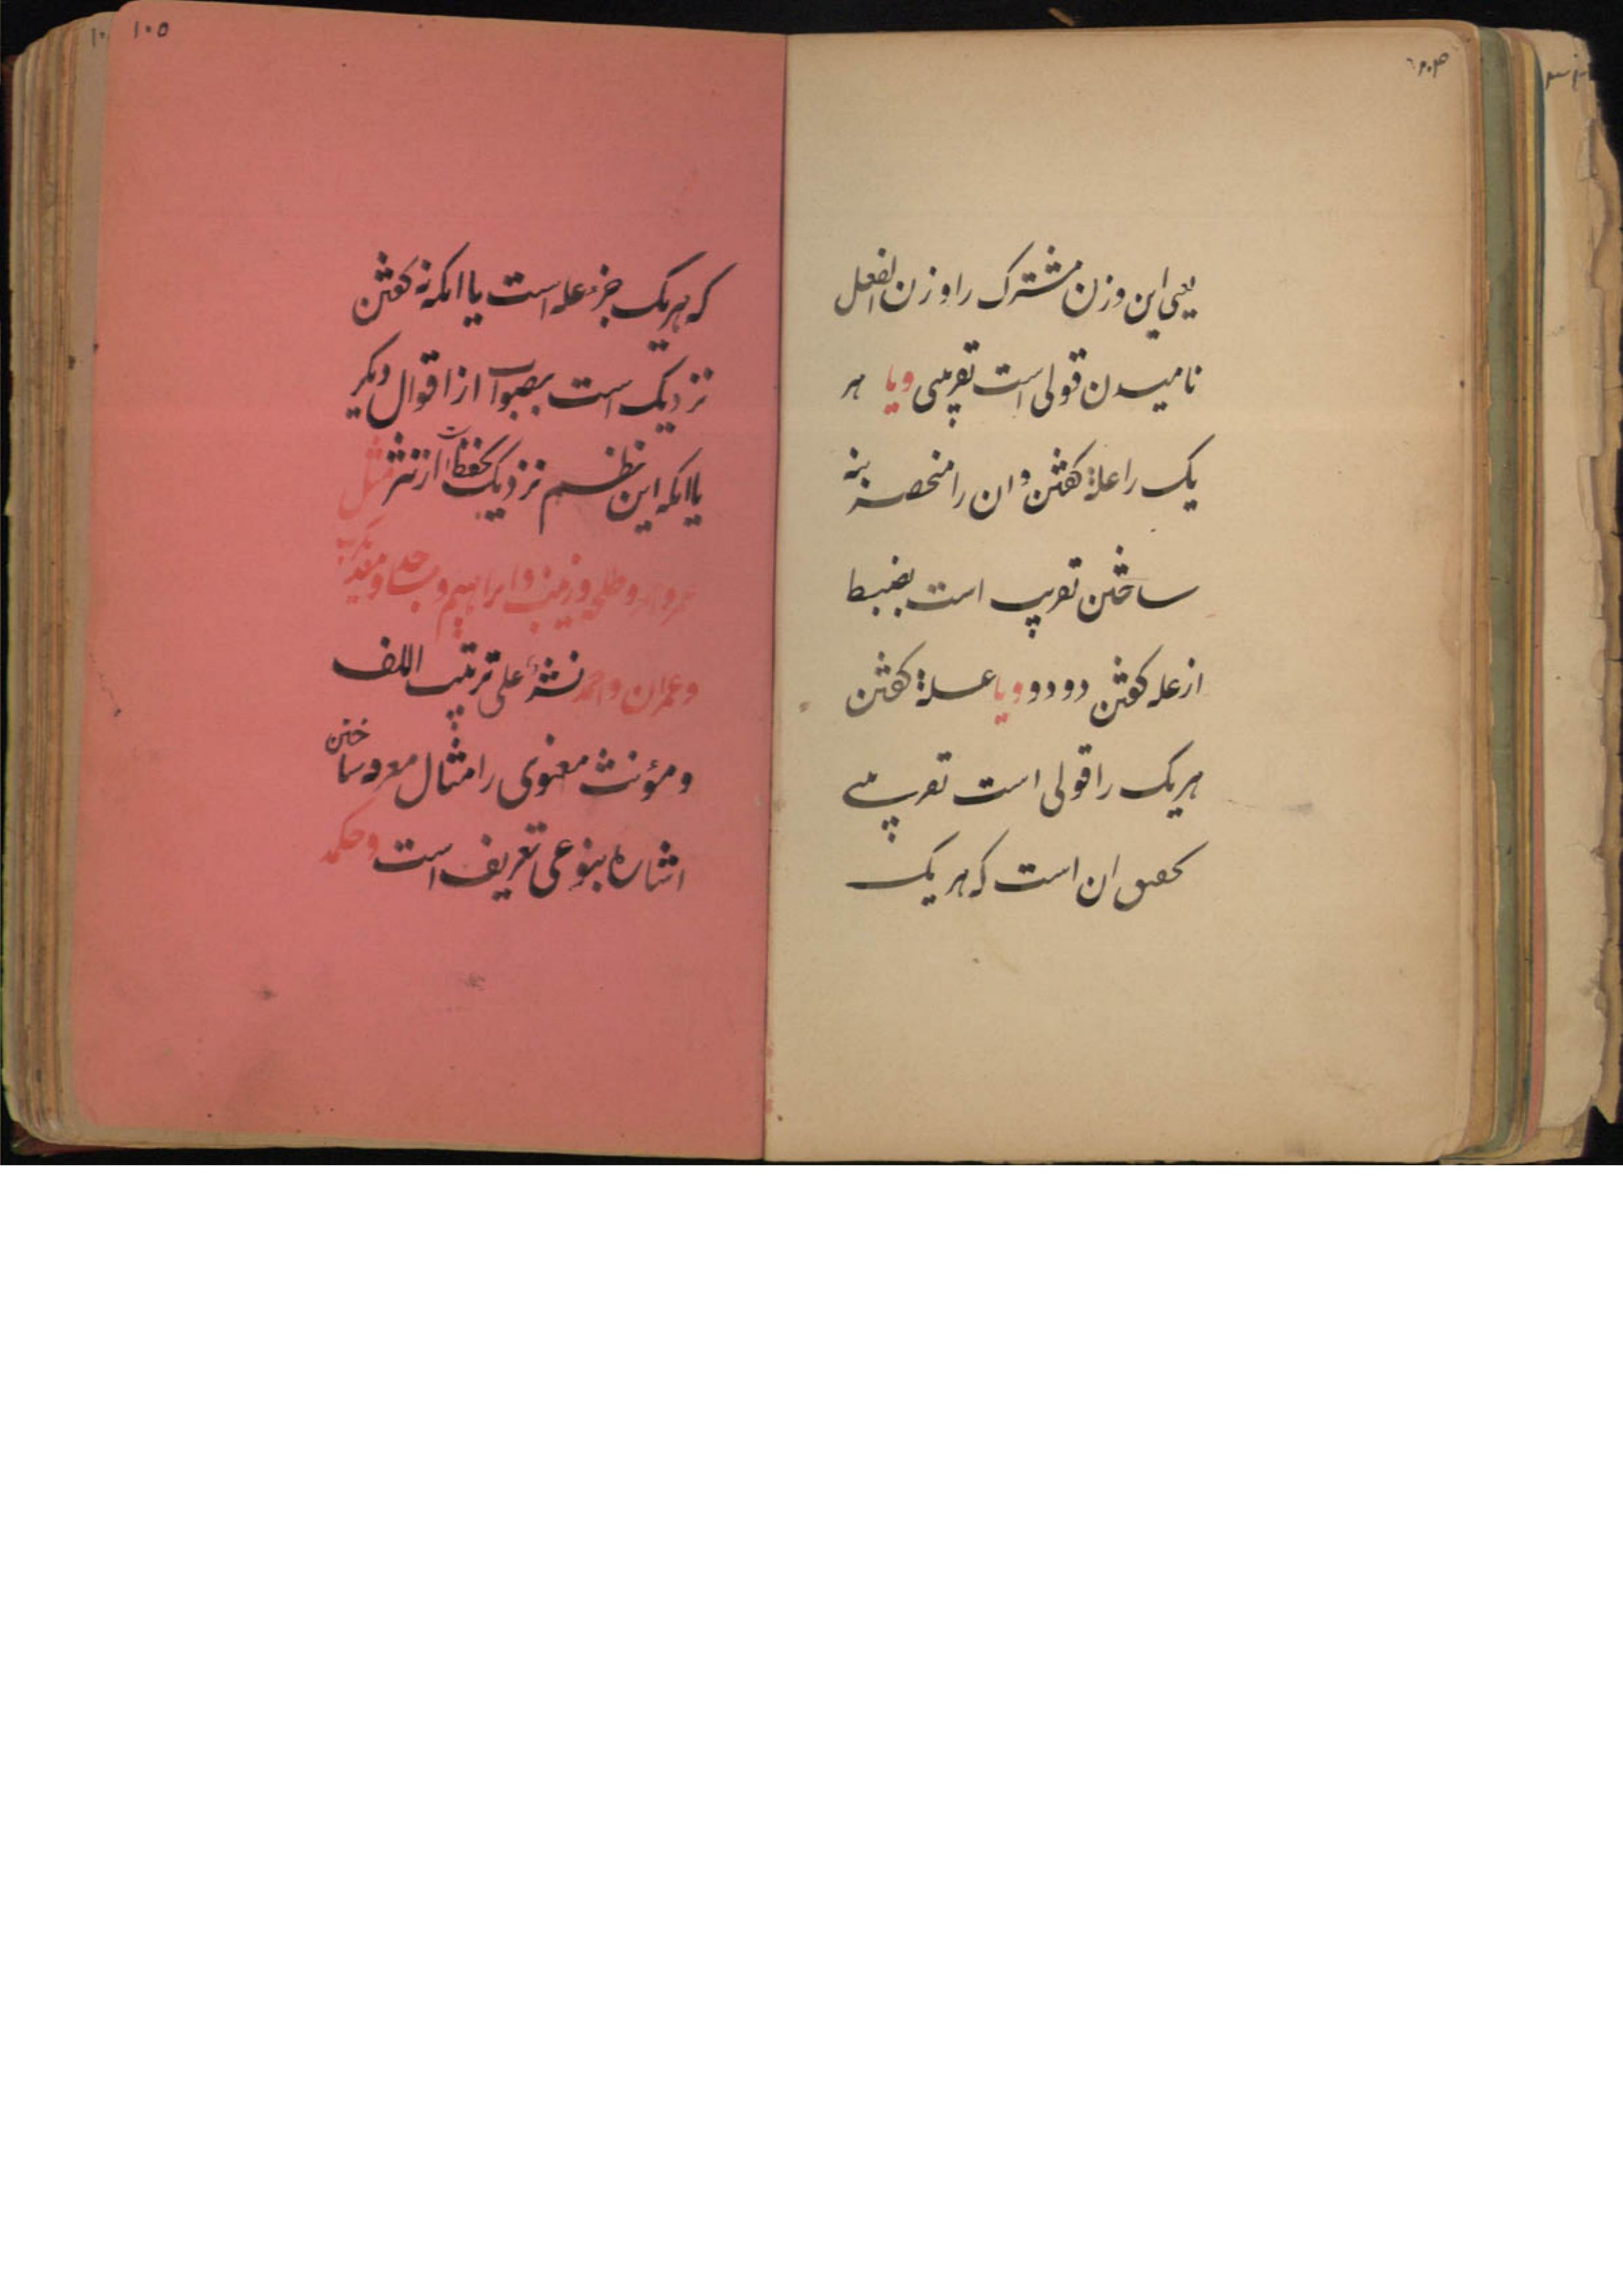 یعنی این وزن مشترک را وزن الفعل
نامیدن قولی است تقریبی ویا هر
یک را علة کفتن و ان را منحصر بنه
ساختن تقریب است بضبط
از علة کفتن دو دو ویا علة کفتن
هر یک را قولی است تقریبی
تحقیق ان است که هر یک
۱۰۵
که هر یک جزء علة است یا انکه نه کفتن
نزدیک است بصواب از اقوال دیکر
یا انکه این نظم نزدیک بحفظ است از نثر مثل
عمر و احمر و طلحة و زینب و ابراهیم و مساجد و معدیکرب
و عمران و احمد نشر علی ترتیب اللف
و مؤنث معنوی را مثال معرو ساختن
اشاره بنوعی تعریف است و حکمه